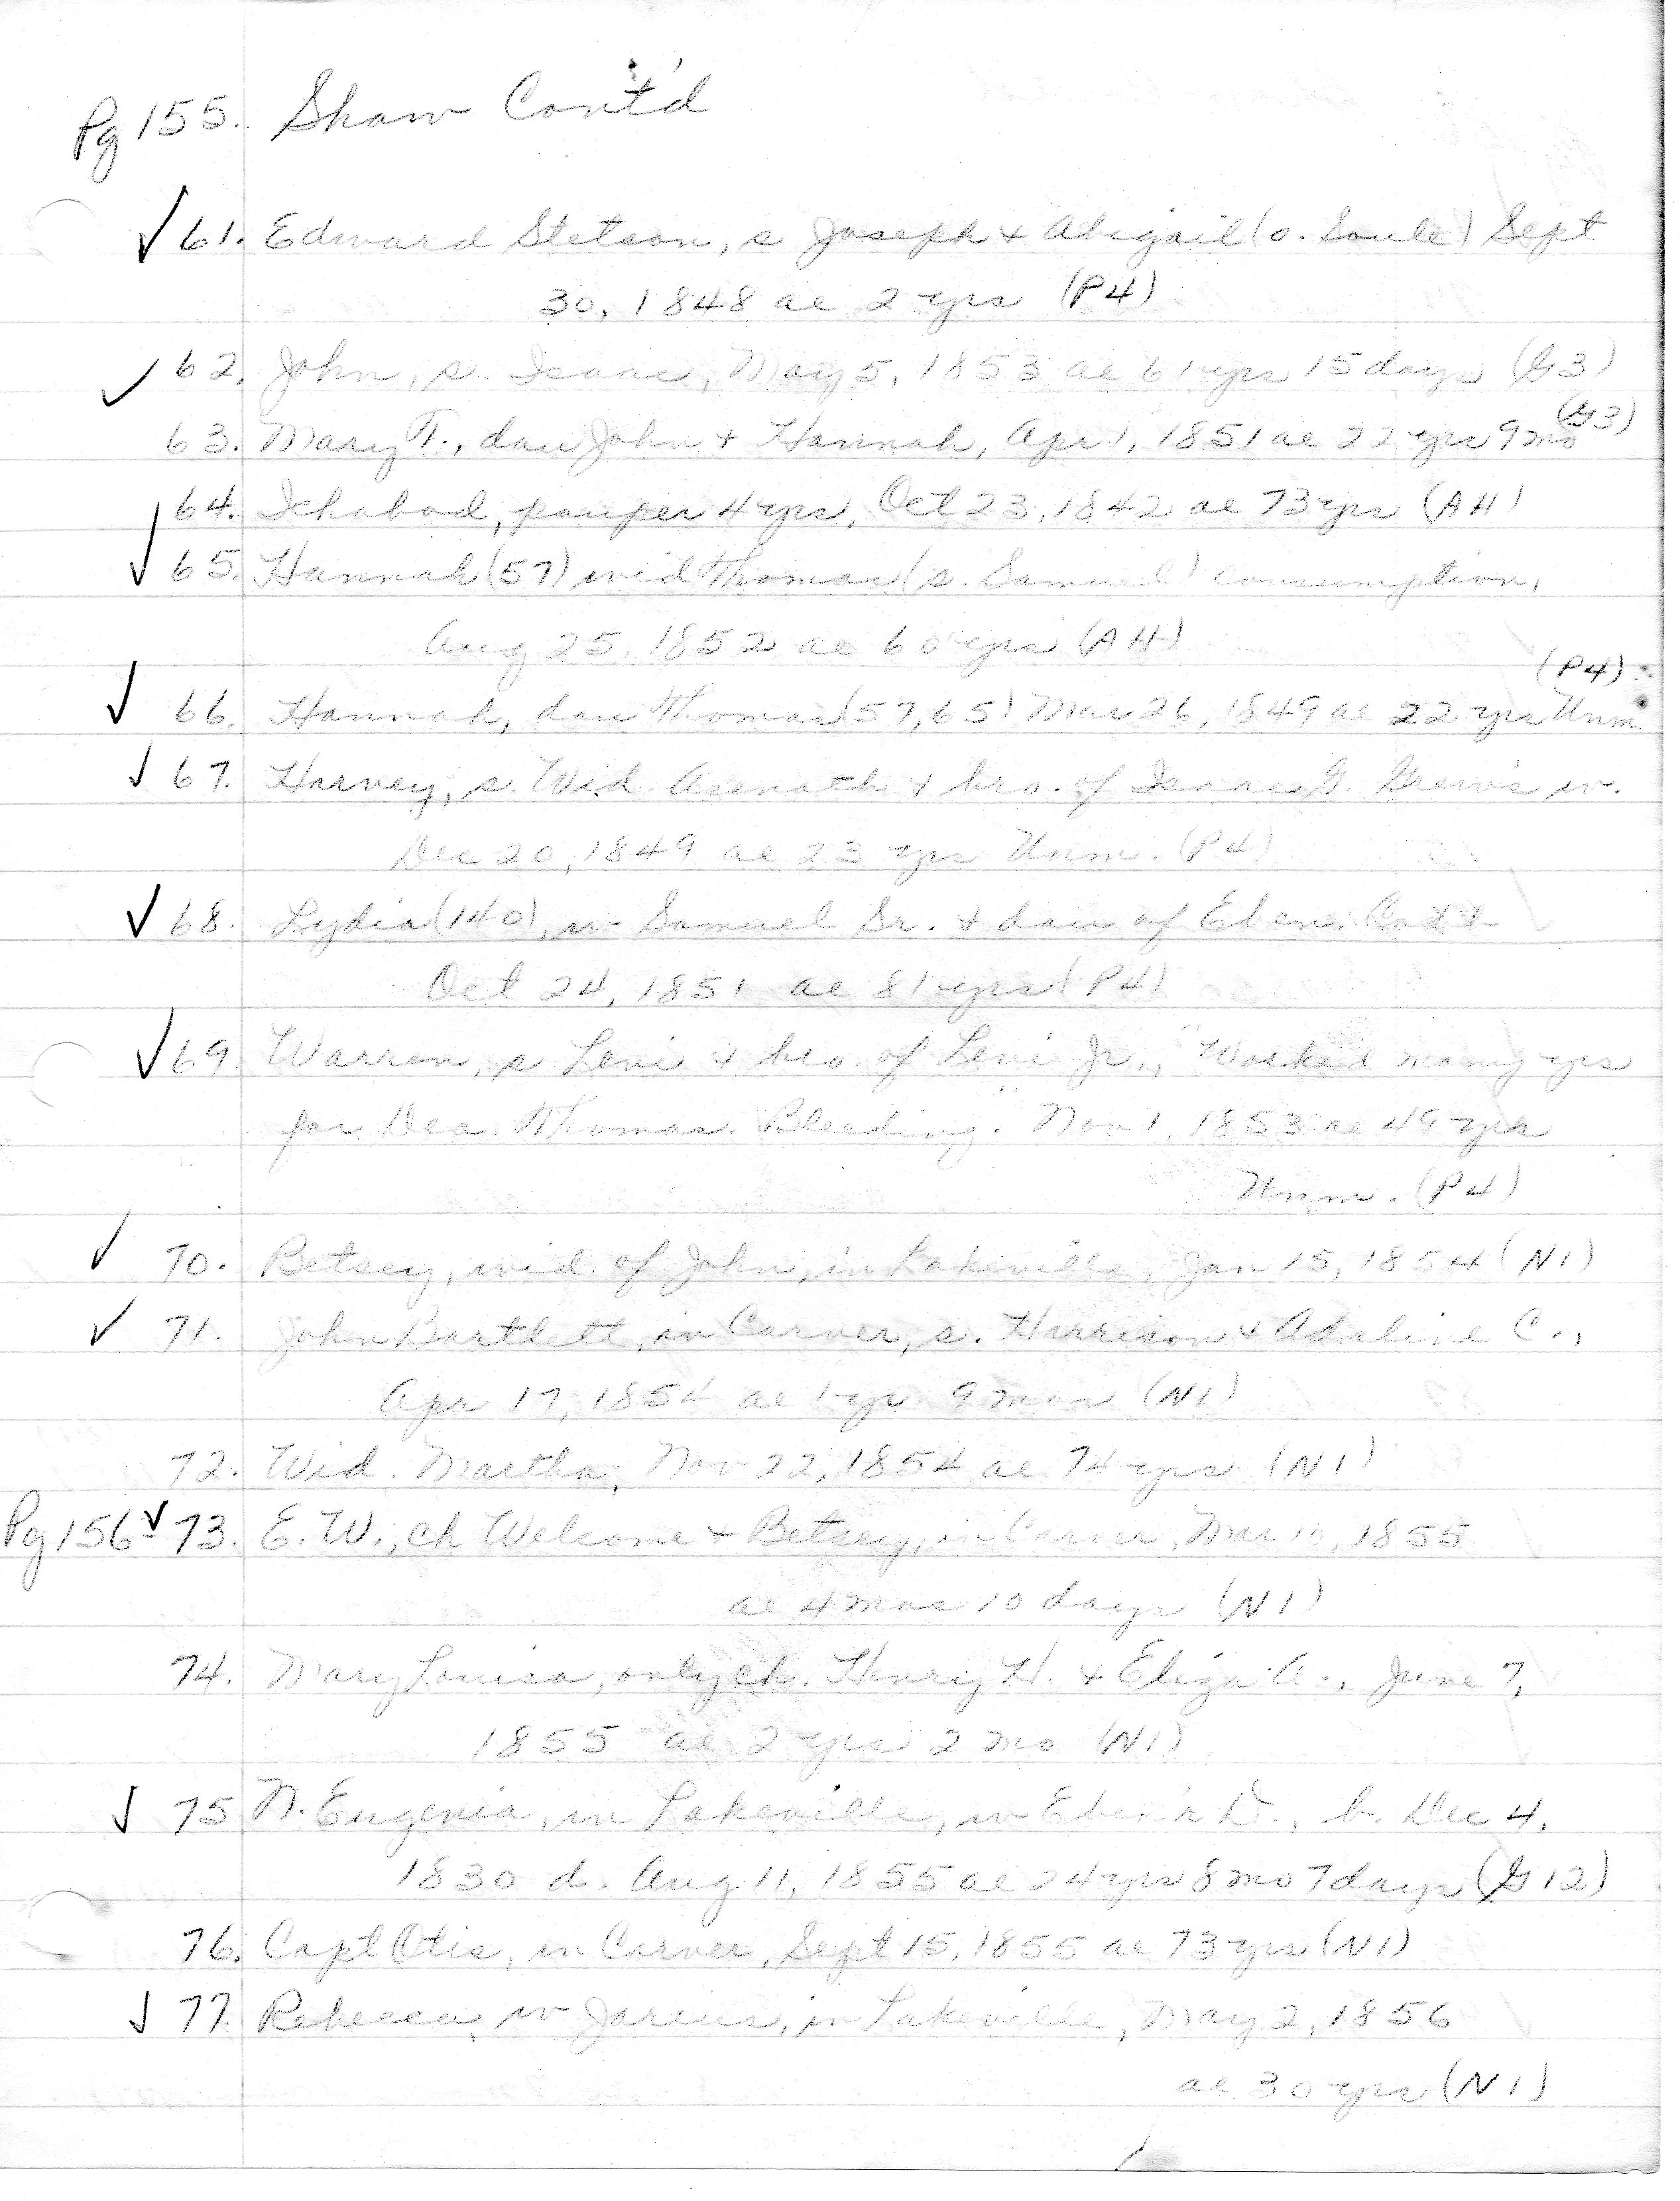 Pg 155. Shaw Cont'd
✓ 61. Edward Stetson, s Joseph + Abigail (o. Soule) Sept
30, 1848 ae 2 yrs (P4)
✓ 62. John, s. Isaac, May 5, 1853 ae 61 yrs 15 days (G3)
(G3)
63. Mary T., dau John + Hannah, Apr 1, 1851 ae 22 yrs 9 mo
64. Ichabod, pauper 4 yrs, Oct 23, 1842 ae 73 yrs (AH)
✓ 65. Hannah (57) wid Thomas (s. Samuel) consumption,
Aug 25, 1852 ae 60 yrs (AH)
(P4)
✓ 66. Hannah, dau Thomas (57,65) Mar 26, 1849 ae 22 yrs Unm
✓ 67. Harvey, s. Wid. Asenath + bro. of Isaac G. w.
Dec 20, 1849 ae 23 yrs Unm. (P4)
✓ 68. Lydia (140), w Samuel Sr. + dau of Eben.
Oct 24, 1851 ae 81 yrs (P4)
✓ 69. Warren, s Levi + bro. of Levi Jr., "Worked many yrs
for Dea. Thomas. Bleeding." Nov 1, 1853 ae 49 yrs
Unm. (P4)
✓ 70. Betsey, wid. of John, in Lakeville, Jan 15, 1854 (N1)
✓ 71. John Bartlett, in Carver, s. Harrison + Adaline C.,
Apr 17, 1854 ae 1 yr 9 mos (N1)
72. Wid. Martha, Nov 22, 1854 ae 74 yrs (N1)
Pg 156 ✓ 73. E. W., ch Welcome + Betsey, in Carver, Mar 1855
ae 4 mos 10 days (N1)
74. Mary Louisa, only ch. Henry H. + Eliza A., June 7,
1855 ae 2 yrs 2 mo (N1)
✓ 75 N. Eugenia, in Lakeville, w Eben'r D., b. Dec 4,
1830 d. Aug 11, 1855 ae 24 yrs 8 mo 7 days (G12)
76. Capt Otis, in Carver, Sept 15, 1855 ae 73 yrs (N1)
✓ 77. Rebecca, w Jarius, in Lakeville, May 2, 1856
ae 30 yrs (N1)